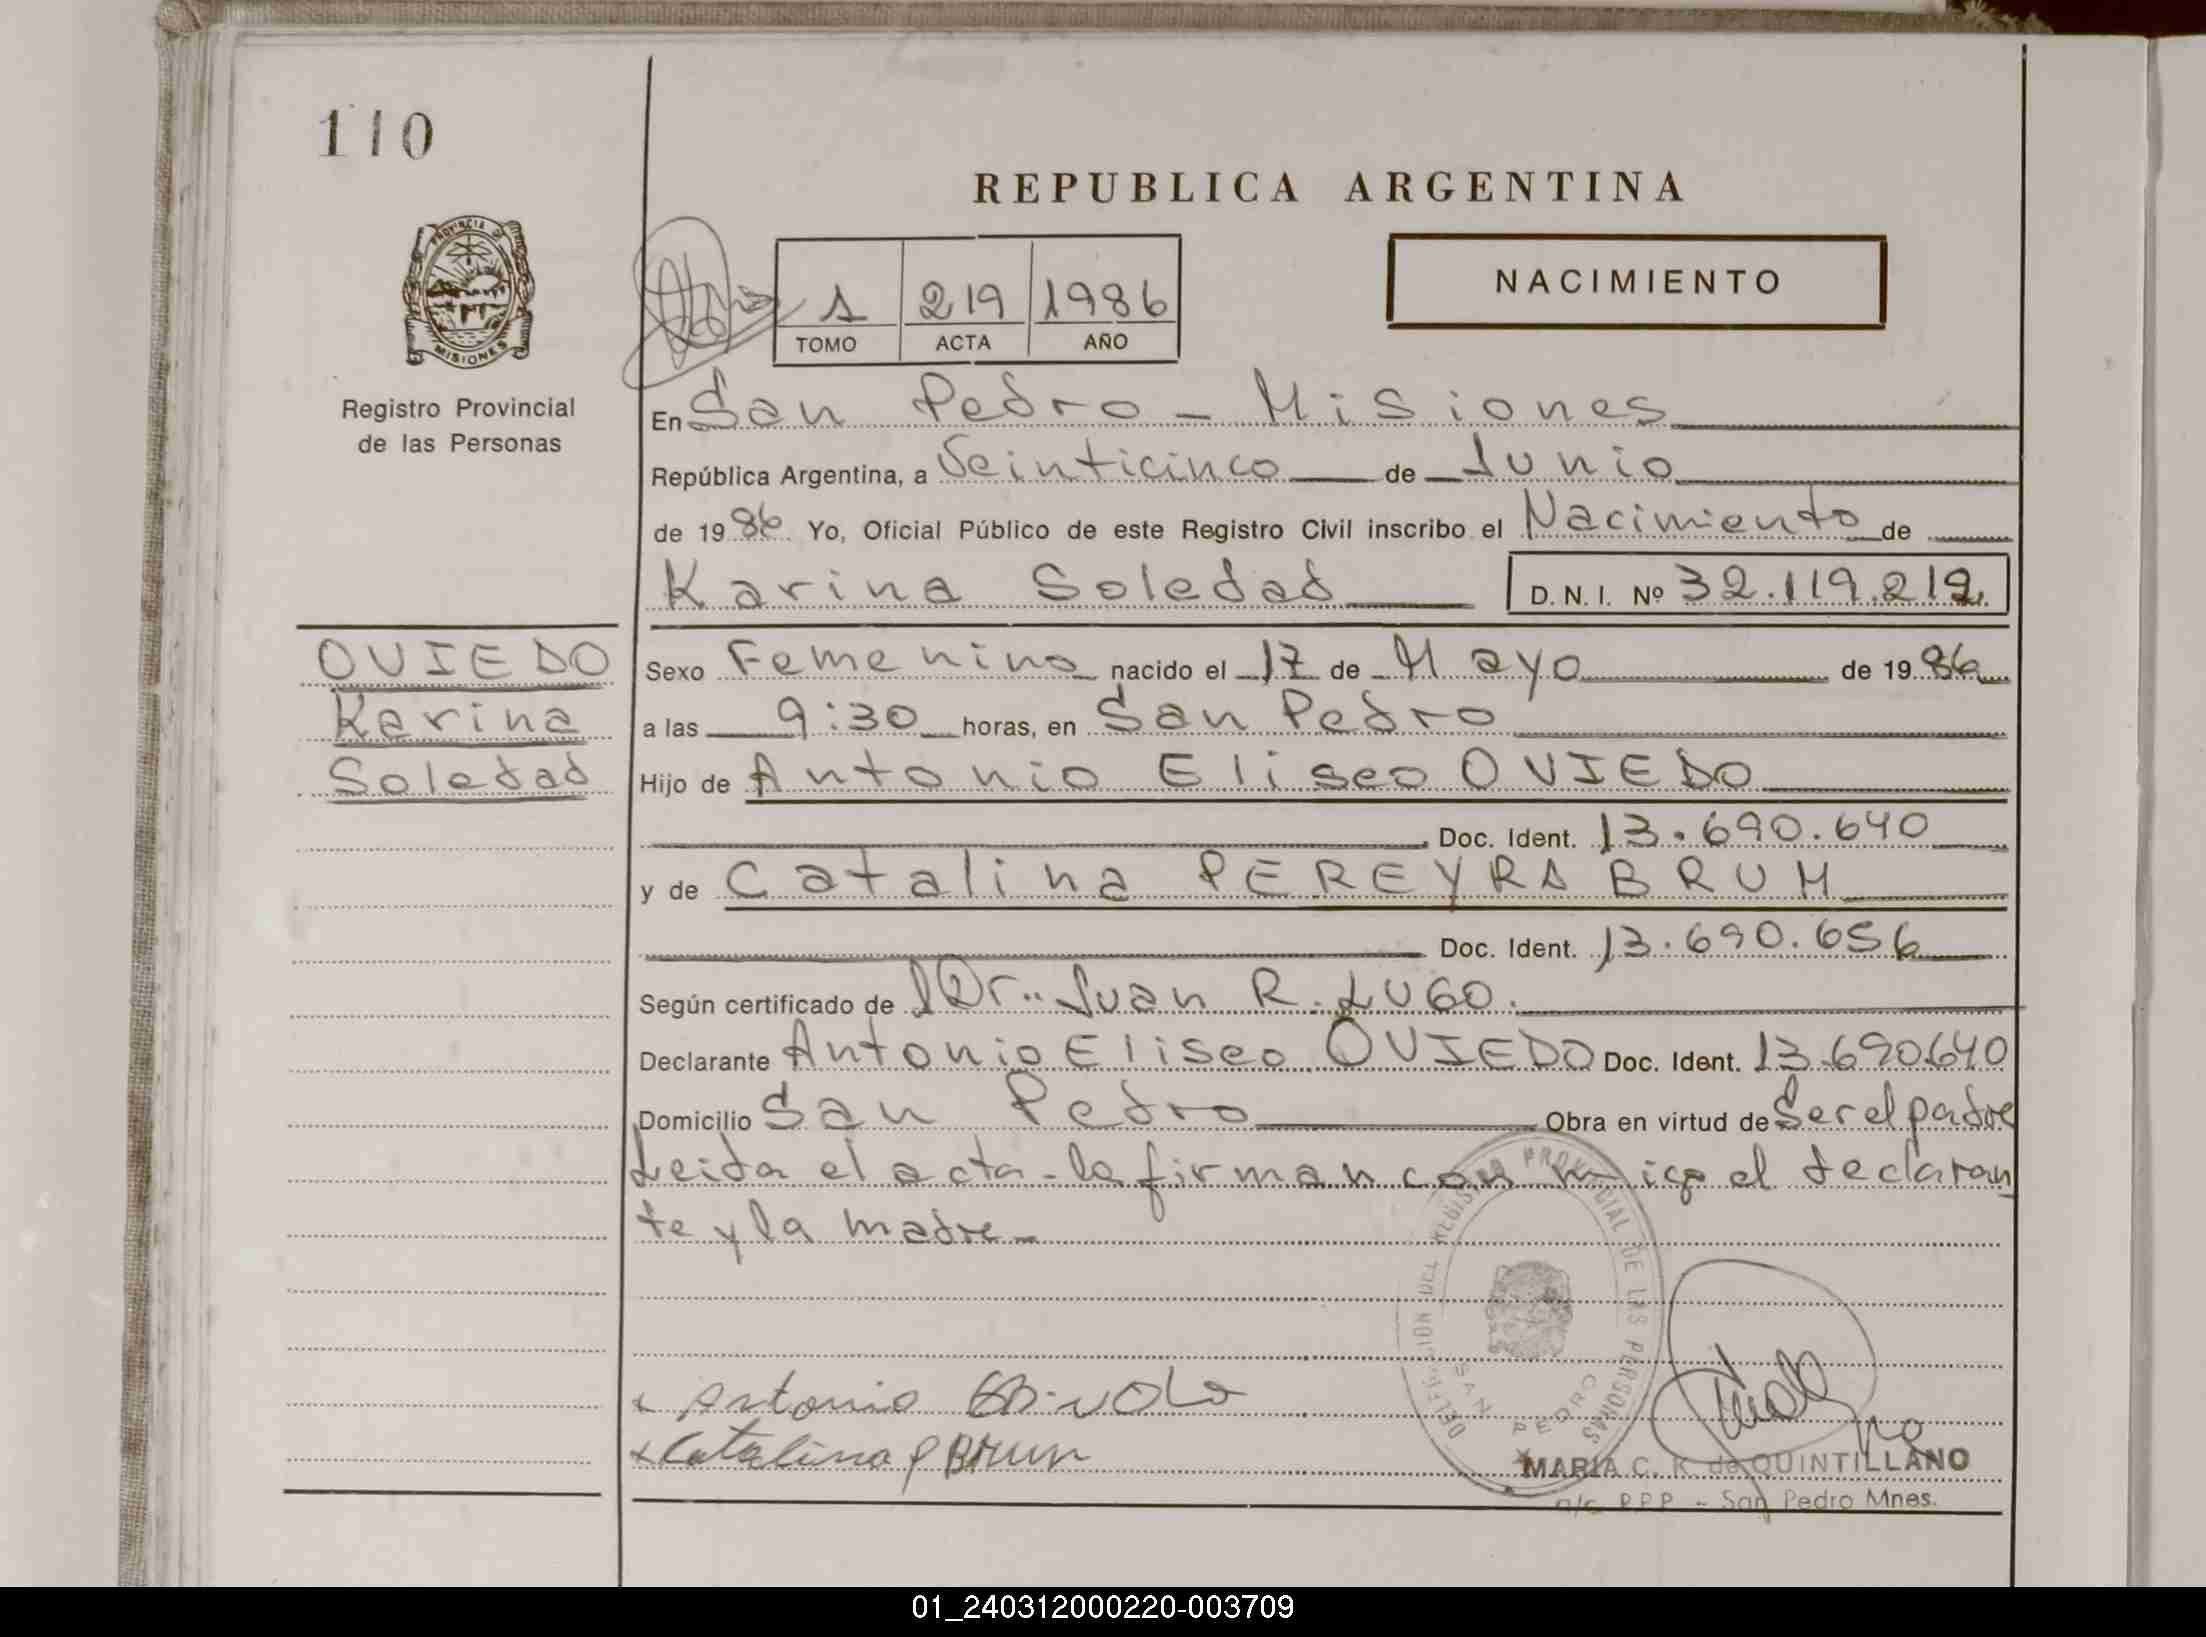 110
REPUBLICA ARGENTINA
PROVINCIA DE MISIONES
1 219 1986
TOMO ACTA AÑO
NACIMIENTO
Registro Provincial
de las Personas
En San Pedro - Misiones
República Argentina, a Veinticinco de Junio
de 1986 Yo, Oficial Público de este Registro Civil inscribo el Nacimiento de
Karina Soledad D.N.I. Nº 32.119.212.
OVIEDO
Karina
Soledad
Sexo Femenino nacido el 17 de Mayo de 1986
a las 9:30 horas, en San Pedro
Hijo de Antonio Eliseo OVIEDO
Doc. Ident. 13.690.640
y de Catalina PEREYRA BRUM
Doc. Ident. 13.690.656
Según certificado de Dr.. Juan R. LUGO.
Declarante Antonio Eliseo OVIEDO Doc. Ident. 13.690.640
Domicilio San Pedro Obra en virtud de Ser el padre
Leida el acta - la firman con migo el declaran
te y la madre -
DELEGACION DEL REGISTRO PROVINCIAL DE LAS PERSONAS
SAN PEDRO
x Antonio
x Catalina P Brun
MARIA C. K. de QUINTILLANO
a/c R.P.P. - San Pedro Mnes.
01_240312000220-003709